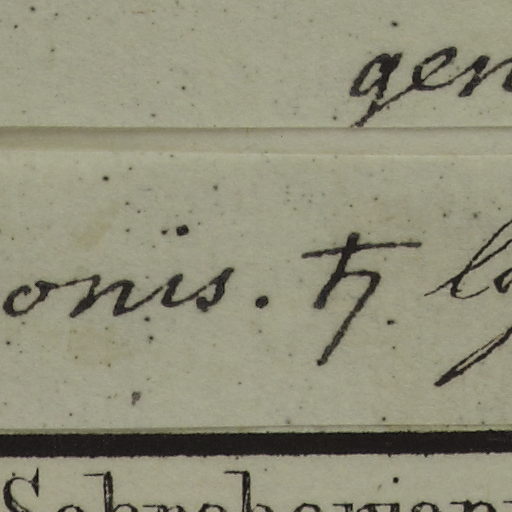 gen
onis. ♄ ly
Schreberian